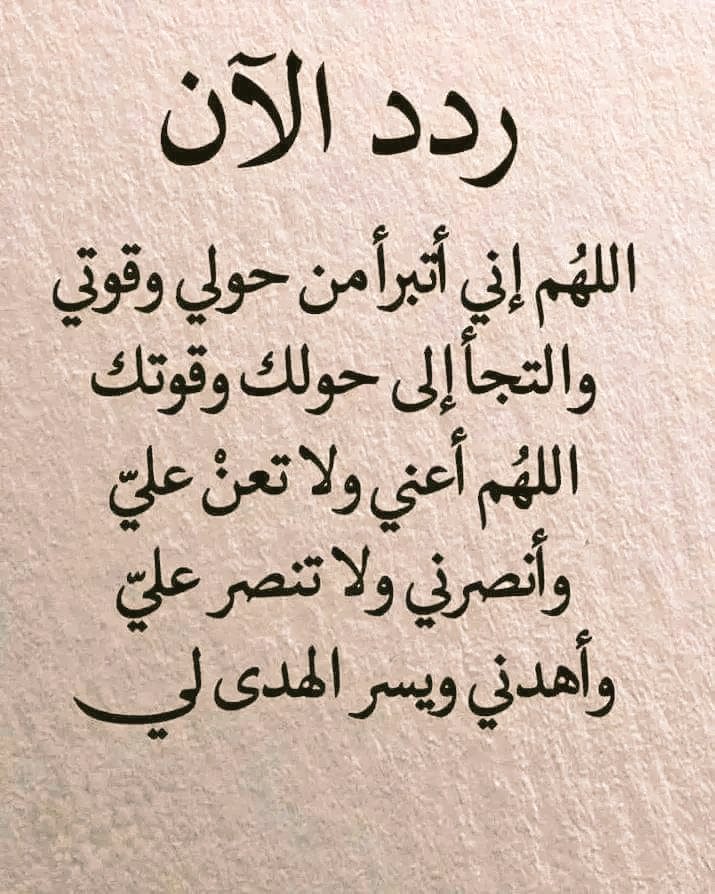 ردد الآن
اللهُم إني أتبرأ من حولي وقوتي
والتجأ إلى حولك وقوتك
اللهُم أعني ولا تعنْ عليّ
وأنصرني ولا تنصر عليّ
وأهدني ويسر الهدى لي